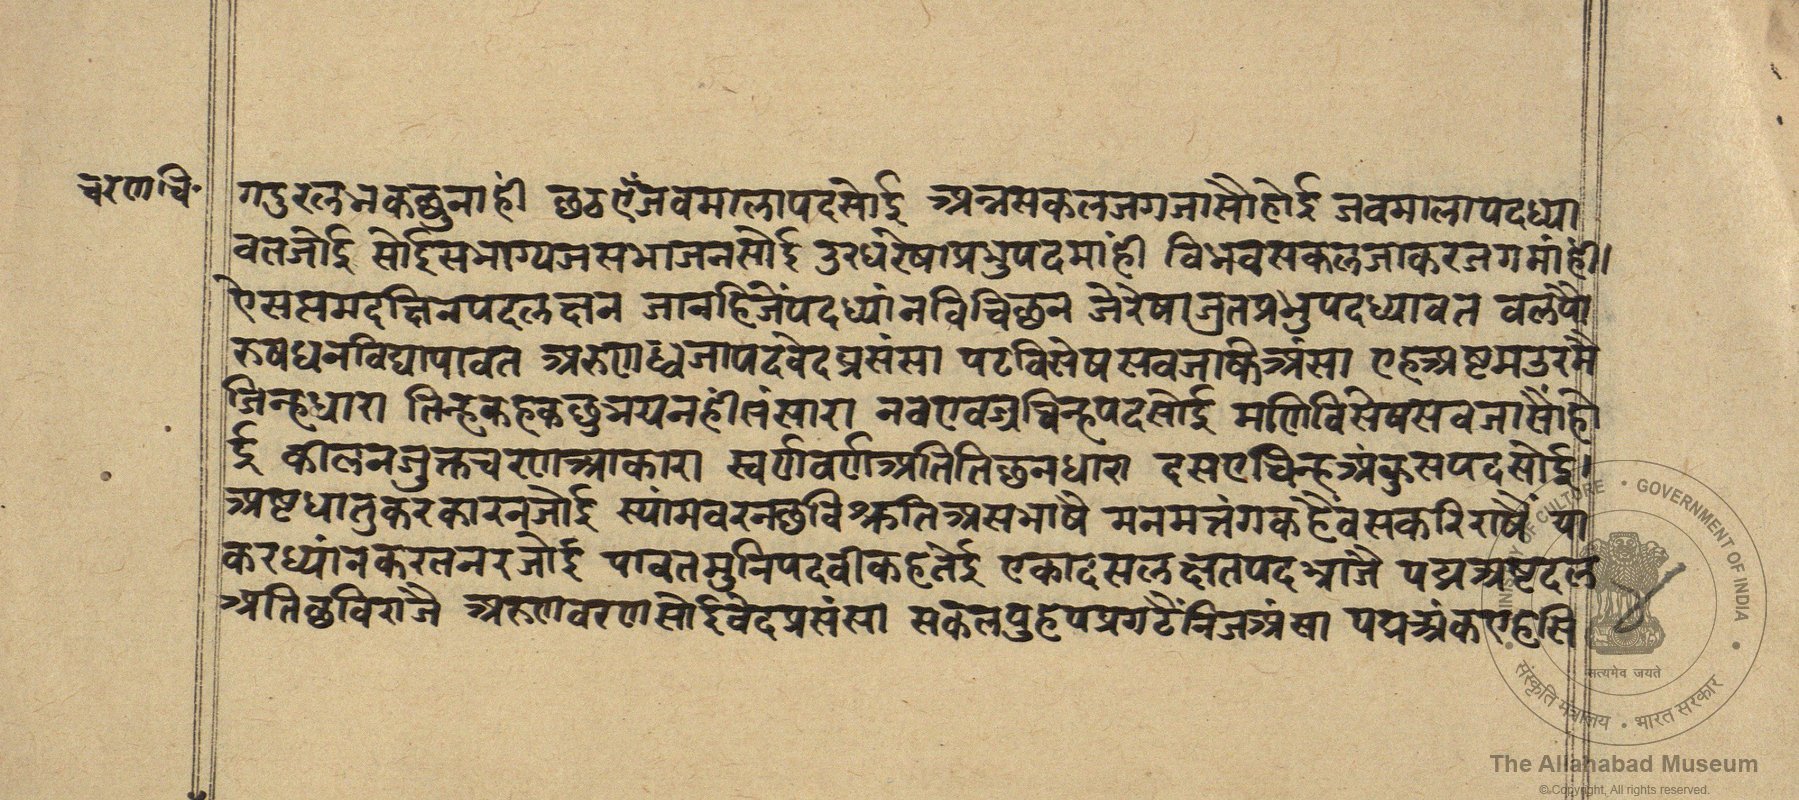 चरणचि॰
गदुरलभकछुनाहीं छठऐंजवमालापदसोई अन्नसकलजगजासौहोई जवमालापदध्या
वतजोई सोईसभाग्यजसभाजनसोई उरधरेषाप्रभुपदमांही विभवसकलजाकरजगमांही।
ऐसप्तमदछिनपदलछन जानहिजेंपदध्यांनविचिछन जेरेषाजुतप्रभुपदध्यावत बलपौ
रुषधनविद्यापावत अरुणध्वजापदवेदप्रसंसा पटविसेषसवजाकेअंसा एहअष्टमउरमै
जिन्हधारा तिन्हकहकछुभयनहींसंसारा नवएवज्रचिन्हपदसोई मणिविसेषसवजासौंहो
ई कीलनजुक्तचरणआकारा स्वर्णवर्णअतितिछनधारा दसएचिन्हअंकुसपदसोई।
अष्टधातुकरकारनजोई स्यांमवरनछविश्रुतिअसभाषै मनमत्तंगकहैंवसकरिराषैं या
करध्यांनकरतनरजोई पावतमुनिपदवीकहतेई एकादसलछनपदभ्राजै पद्मअष्टदल
अतिछविराजै अरुणवरणसोईवेदप्रसंसा सकलपुहपप्रगटैंनिजअंसा पद्मअंकएहसि
MINISTRY OF CULTURE • GOVERNMENT OF INDIA
सत्यमेव जयते
संस्कृति मंत्रालय • भारत सरकार
The Allahabad Museum
© Copyright, All rights reserved.